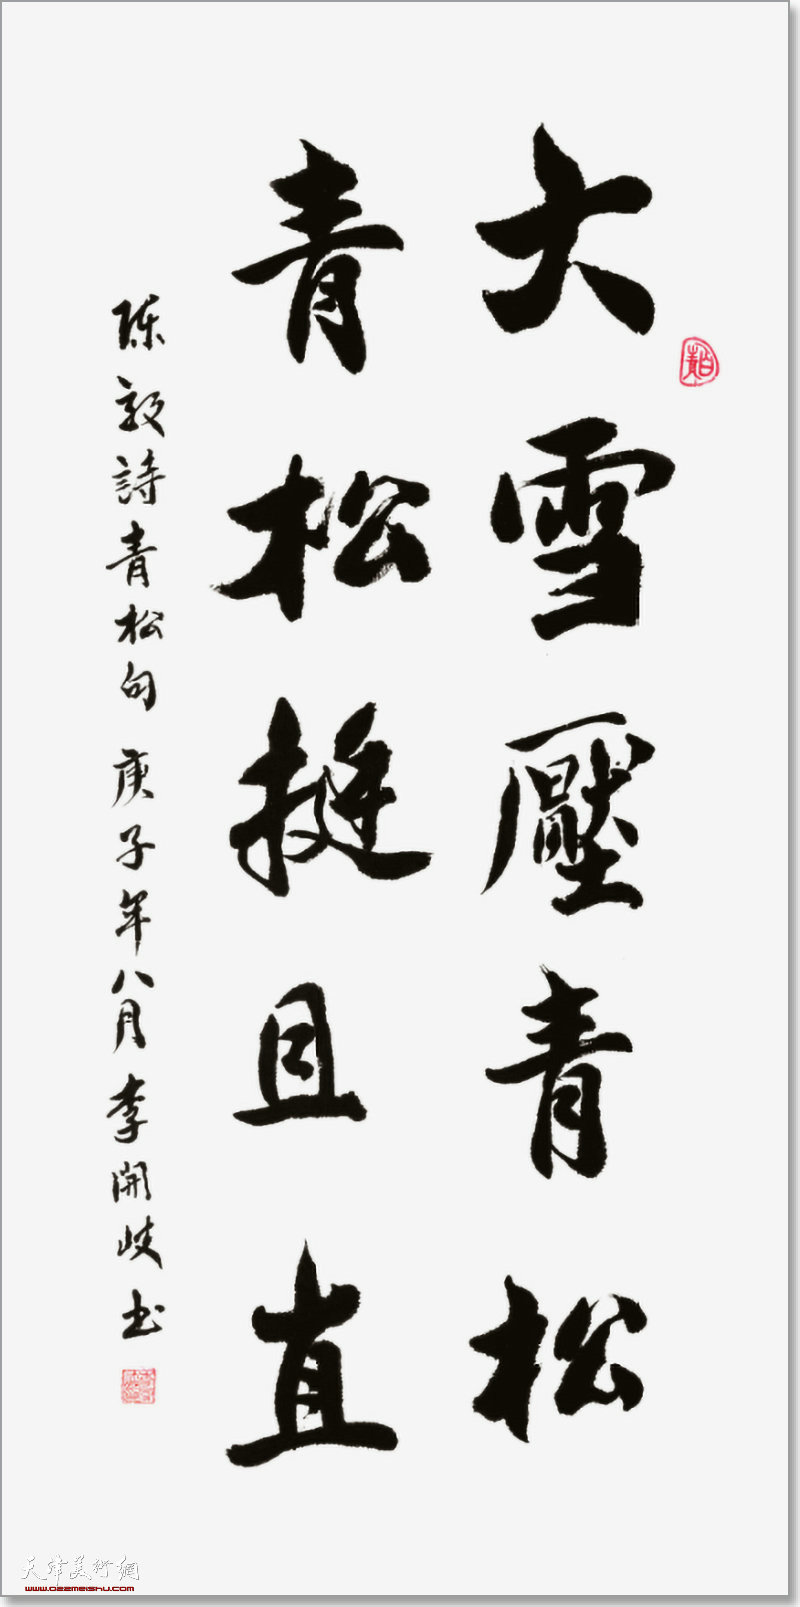 大雪壓青松
青松挺且直
陈毅詩青松句 庚子年八月李開岐书
天津美術網
www.022meishu.com